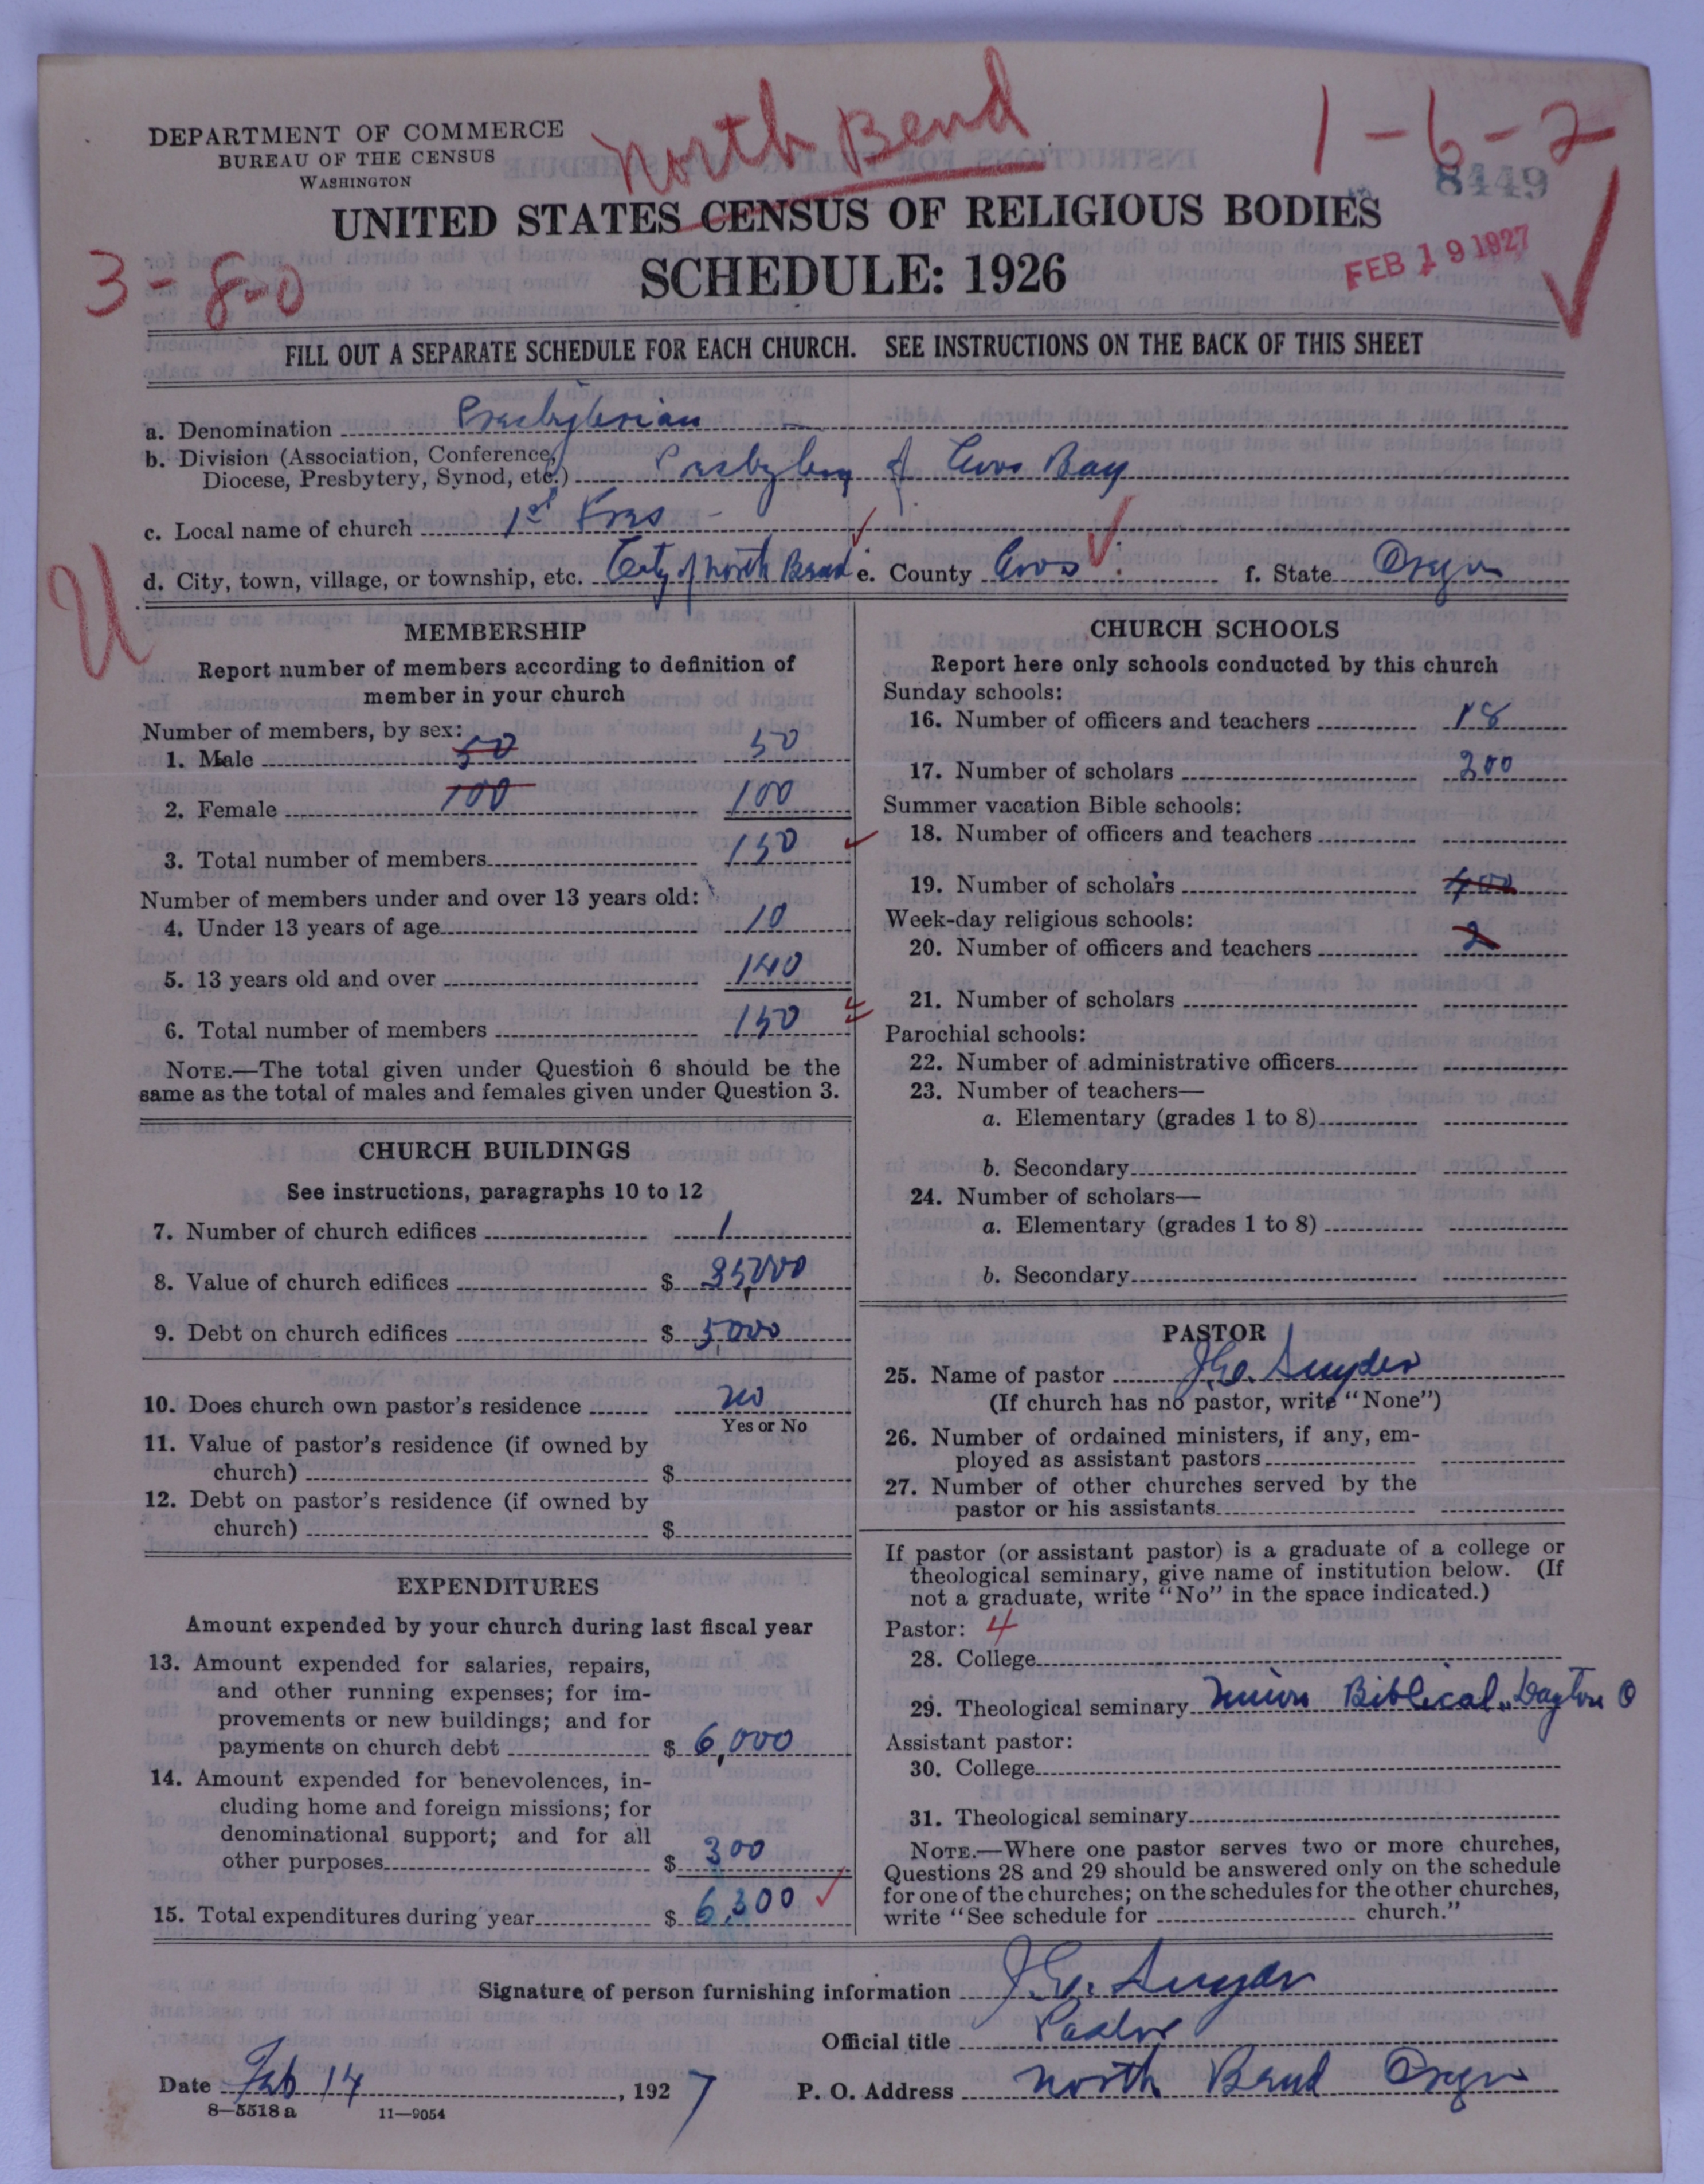 North Bend
1-6-2
DEPARTMENT OF COMMERCE
BUREAU OF THE CENSUS
WASHINGTON
8449
UNITED STATES CENSUS OF RELIGIOUS BODIES
SCHEDULE: 1926
FEB 19 1927
3-8-0
FILL OUT A SEPARATE SCHEDULE FOR EACH CHURCH. SEE INSTRUCTIONS ON THE BACK OF THIS SHEET
a. Denomination Presbyterian
b. Division (Association, Conference,
Diocese, Presbytery, Synod, etc.) Presbytery of Coos Bay
c. Local name of church 1st Pres
d. City, town, village, or township, etc. City of North Bend e. County Coos f. State Oregon
U
MEMBERSHIP
Report number of members according to definition of
member in your church
Number of members, by sex:
1. Male 50 50
2. Female 100 100
3. Total number of members 150
Number of members under and over 13 years old:
4. Under 13 years of age 10
5. 13 years old and over 140
6. Total number of members 150
NOTE.—The total given under Question 6 should be the
same as the total of males and females given under Question 3.
CHURCH BUILDINGS
See instructions, paragraphs 10 to 12
7. Number of church edifices 1
8. Value of church edifices $ 35,000
9. Debt on church edifices $ 5,000
10. Does church own pastor's residence no
Yes or No
11. Value of pastor's residence (if owned by
church) $
12. Debt on pastor's residence (if owned by
church) $
EXPENDITURES
Amount expended by your church during last fiscal year
13. Amount expended for salaries, repairs,
and other running expenses; for im-
provements or new buildings; and for
payments on church debt $ 6,000
14. Amount expended for benevolences, in-
cluding home and foreign missions; for
denominational support; and for all
other purposes $ 300
15. Total expenditures during year $ 6,300
CHURCH SCHOOLS
Report here only schools conducted by this church
Sunday schools:
16. Number of officers and teachers 18
17. Number of scholars 200
Summer vacation Bible schools:
18. Number of officers and teachers
19. Number of scholars 400
Week-day religious schools:
20. Number of officers and teachers 2
21. Number of scholars
Parochial schools:
22. Number of administrative officers
23. Number of teachers—
a. Elementary (grades 1 to 8)
b. Secondary
24. Number of scholars—
a. Elementary (grades 1 to 8)
b. Secondary
PASTOR
25. Name of pastor J.G. Snyder
(If church has no pastor, write "None")
26. Number of ordained ministers, if any, em-
ployed as assistant pastors
27. Number of other churches served by the
pastor or his assistants
If pastor (or assistant pastor) is a graduate of a college or
theological seminary, give name of institution below. (If
not a graduate, write "No" in the space indicated.)
Pastor: 4
28. College
29. Theological seminary Union Biblical, Dayton O
Assistant pastor:
30. College
31. Theological seminary
NOTE.—Where one pastor serves two or more churches,
Questions 28 and 29 should be answered only on the schedule
for one of the churches; on the schedules for the other churches,
write "See schedule for church."
Signature of person furnishing information J.G. Snyder
Official title Pastor
Date Feb 14, 1927 P. O. Address North Bend Oregon
8—5518 a 11—9054